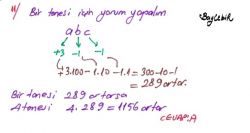 11) Bir tanesi için yorum yapalım
Bağlıbik
abc
+3 -1 -1
+3.100-1.10-1.1=300-10-1
=289 artar.
Bir tanesi 289 artarsa
4 tanesi 4.289=1156 artar
CEVAP:A